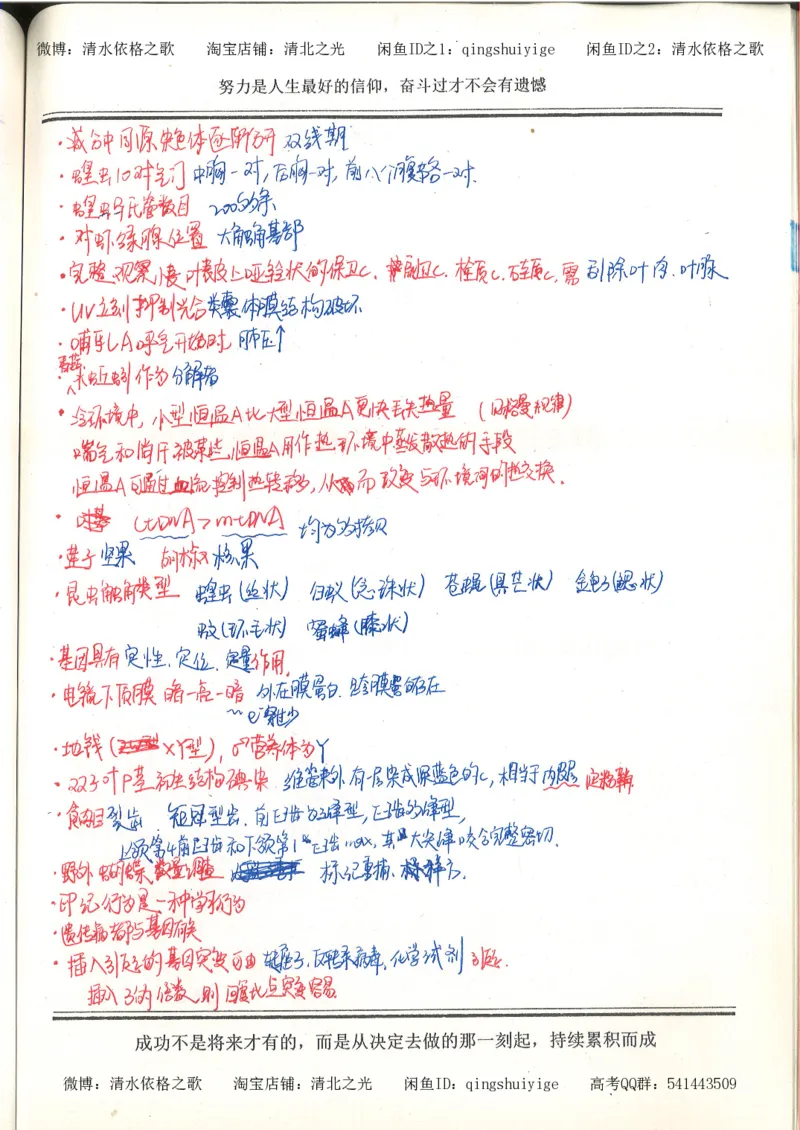 微博：清水依格之歌 淘宝店铺：清北之光 闲鱼ID之1：qingshuiyige 闲鱼ID之2：清水依格之歌
努力是人生最好的信仰，奋斗过才不会有遗憾
·减分中同源染色体逐渐分开 双线期
·蝗虫10对气门 中胸一对，后胸一对，前八个腹节各一对.
·蝗虫马氏管数目 200多条
·对虾绿腺位置 大触角基部
·完整观察小麦叶表皮上哑铃状的保卫c. 副卫c. 栓质c. 硅质c, 需 刮除叶肉.叶脉
·UV立刻抑制光合 类囊体膜结构破坏
·哺乳A呼气开始时, 肺压↑
·蚯蚓作为 分解者
·冷环境中，小型恒温A比大型恒温A更快丢失热量 （贝格曼规律）
喘气和出汗被某些恒温A用作热环境中蒸发散热的手段
恒温A可通过血流控制热转移，从而改变与环境间的热交换.
· ctDNA > mtDNA 均为多拷贝
·莲子 坚果 核果
·昆虫触角类型 蝗虫（丝状） 白蚁（念珠状） 苍蝇（具芒状） 金龟子（鳃状）
蚊（环毛状） 蜜蜂（膝状）
·基因具有 定性. 定位. 定量作用.
·电镜下质膜 暗—亮—暗 外在膜蛋白. 跨膜蛋白存在
·地钱（ XY型），♂营养体为Y
· 叶 维管束外有一层染成深蓝色的c, 相当于内皮层 淀粉鞘
·食肉目 裂齿. 前臼齿
上颌第4前臼齿和下颌第1臼齿max, 其 大尖 咬合完整密切.
·野外 蝴蝶数量调查 标记重捕.
·印记行为是一种学习行为
·遗传病都与基因有关
·插入引起的基因突变可由 转座子, 反转录病毒, 化学试剂 引起.
插入3的倍数, 则回复比点突变容易.
成功不是将来才有的，而是从决定去做的那一刻起，持续累积而成
微博：清水依格之歌 淘宝店铺：清北之光 闲鱼ID：qingshuiyige 高考QQ群：541443509